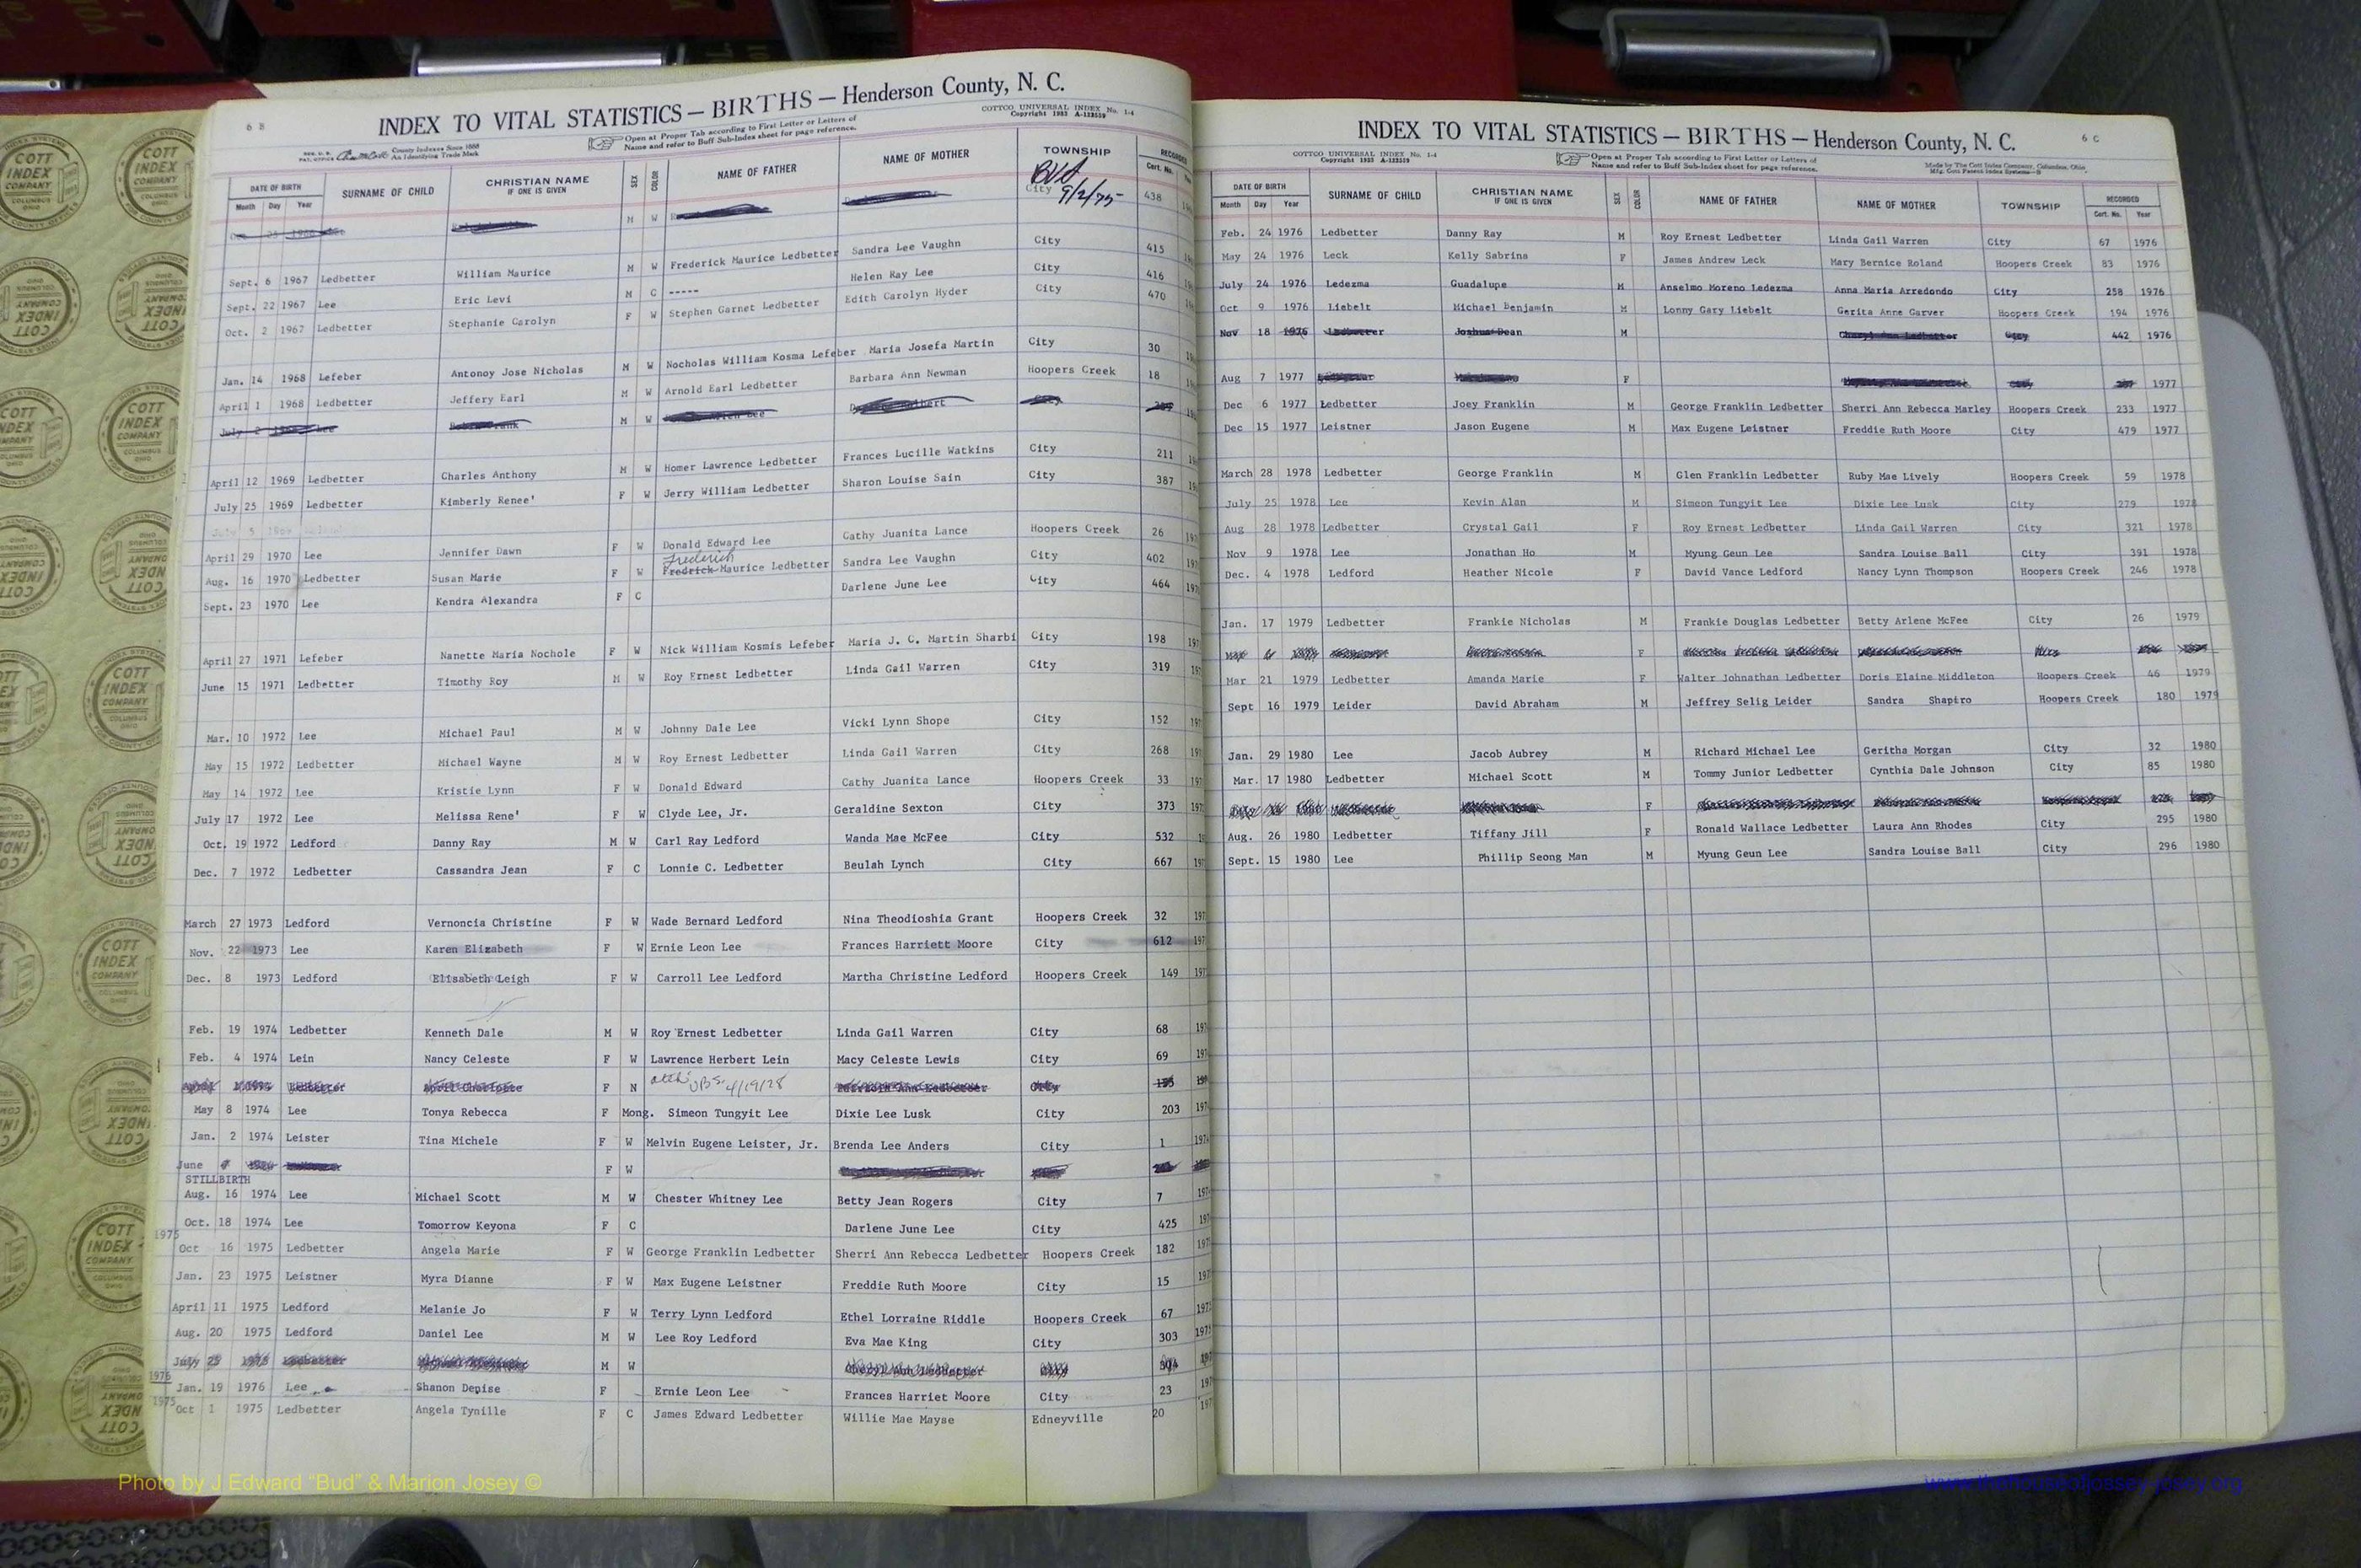 6 B
INDEX TO VITAL STATISTICS — BIRTHS — Henderson County, N. C.
COTTCO UNIVERSAL INDEX No. 1-4
Copyright 1953 A-122519
REG. U. S. PAT. OFFICE County Indexes Since 1888 An Identifying Trade Mark
Open at Proper Tab according to First Letter or Letters of
Name and refer to Buff Sub-Index sheet for page reference.
DATE OF BIRTH SURNAME OF CHILD CHRISTIAN NAME IF ONE IS GIVEN SEX COLOR NAME OF FATHER NAME OF MOTHER TOWNSHIP RECORDED
Month Day Year Cert. No.
M W City 9/2/75 438
Sept. 6 1967 Ledbetter William Maurice M W Frederick Maurice Ledbetter Sandra Lee Vaughn City 415
Sept. 22 1967 Lee Eric Levi M C ----- Helen Ray Lee City 416
Oct. 2 1967 Ledbetter Stephanie Carolyn F W Stephen Garnet Ledbetter Edith Carolyn Hyder City 470
Jan. 14 1968 Lefeber Antonoy Jose Nicholas M W Nocholas William Kosma Lefeber Maria Josefa Martin City 30
April 1 1968 Ledbetter Jeffery Earl M W Arnold Earl Ledbetter Barbara Ann Newman Hoopers Creek 18
July 2 Lee M W
April 12 1969 Ledbetter Charles Anthony M W Homer Lawrence Ledbetter Frances Lucille Watkins City 211
July 25 1969 Ledbetter Kimberly Renee' F W Jerry William Ledbetter Sharon Louise Sain City 387
April 29 1970 Lee Jennifer Dawn F W Donald Edward Lee Cathy Juanita Lance Hoopers Creek 26
Frederick
Aug. 16 1970 Ledbetter Susan Marie F W Fredrick Maurice Ledbetter Sandra Lee Vaughn City 402
Sept. 23 1970 Lee Kendra Alexandra F C Darlene June Lee City 464
April 27 1971 Lefeber Nanette Maria Nochole F W Nick William Kosmis Lefeber Maria J. C. Martin Sharbi City 198
June 15 1971 Ledbetter Timothy Roy M W Roy Ernest Ledbetter Linda Gail Warren City 319
Mar. 10 1972 Lee Michael Paul M W Johnny Dale Lee Vicki Lynn Shope City 152
May 15 1972 Ledbetter Michael Wayne M W Roy Ernest Ledbetter Linda Gail Warren City 268
May 14 1972 Lee Kristie Lynn F W Donald Edward Cathy Juanita Lance Hoopers Creek 33
July 17 1972 Lee Melissa Rene' F W Clyde Lee, Jr. Geraldine Sexton City 373
Oct. 19 1972 Ledford Danny Ray M W Carl Ray Ledford Wanda Mae McFee City 532
Dec. 7 1972 Ledbetter Cassandra Jean F C Lonnie C. Ledbetter Beulah Lynch City 667
March 27 1973 Ledford Vernoncia Christine F W Wade Bernard Ledford Nina Theodioshia Grant Hoopers Creek 32
Nov. 22 1973 Lee Karen Elizabeth F W Ernie Leon Lee Frances Harriett Moore City 612
Dec. 8 1973 Ledford Elisabeth Leigh F W Carroll Lee Ledford Martha Christine Ledford Hoopers Creek 149
Feb. 19 1974 Ledbetter Kenneth Dale M W Roy Ernest Ledbetter Linda Gail Warren City 68
Feb. 4 1974 Lein Nancy Celeste F W Lawrence Herbert Lein Macy Celeste Lewis City 69
F N 4/19/78
May 8 1974 Lee Tonya Rebecca F Mong. Simeon Tungyit Lee Dixie Lee Lusk City 203
Jan. 2 1974 Leister Tina Michele F W Melvin Eugene Leister, Jr. Brenda Lee Anders City 1
June F W
STILLBIRTH
Aug. 16 1974 Lee Michael Scott M W Chester Whitney Lee Betty Jean Rogers City 7
Oct. 18 1974 Lee Tomorrow Keyona F C Darlene June Lee City 425
1975
Oct 16 1975 Ledbetter Angela Marie F W George Franklin Ledbetter Sherri Ann Rebecca Ledbetter Hoopers Creek 182
Jan. 23 1975 Leistner Myra Dianne F W Max Eugene Leistner Freddie Ruth Moore City 15
April 11 1975 Ledford Melanie Jo F W Terry Lynn Ledford Ethel Lorraine Riddle Hoopers Creek 67
Aug. 20 1975 Ledford Daniel Lee M W Lee Roy Ledford Eva Mae King City 303
July M W
1976
Jan. 19 1976 Lee Shanon Denise F Ernie Leon Lee Frances Harriet Moore City 23
1975
Oct 1 1975 Ledbetter Angela Tynille F C James Edward Ledbetter Willie Mae Mayse Edneyville 20
INDEX TO VITAL STATISTICS — BIRTHS — Henderson County, N. C.
6 C
COTTCO UNIVERSAL INDEX No. 1-4
Copyright 1953 A-122519
Open at Proper Tab according to First Letter or Letters of
Name and refer to Buff Sub-Index sheet for page reference.
Made by The Cott Index Company, Columbus, Ohio
DATE OF BIRTH SURNAME OF CHILD CHRISTIAN NAME IF ONE IS GIVEN SEX COLOR NAME OF FATHER NAME OF MOTHER TOWNSHIP RECORDED
Month Day Year Cert. No. Year
Feb. 24 1976 Ledbetter Danny Ray M Roy Ernest Ledbetter Linda Gail Warren City 67 1976
May 24 1976 Leck Kelly Sabrina F James Andrew Leck Mary Bernice Roland Hoopers Creek 83 1976
July 24 1976 Ledezma Guadalupe M Anselmo Moreno Ledezma Anna Maria Arredondo City 258 1976
Oct 9 1976 Liebelt Michael Benjamin M Lonny Gary Liebelt Gerita Anne Garver Hoopers Creek 194 1976
Nov 18 1976 Ledbetter Joshua Dean M Cheryl Ann Ledbetter City 442 1976
Aug 7 1977 F 1977
Dec 6 1977 Ledbetter Joey Franklin M George Franklin Ledbetter Sherri Ann Rebecca Marley Hoopers Creek 233 1977
Dec 15 1977 Leistner Jason Eugene M Max Eugene Leistner Freddie Ruth Moore City 479 1977
March 28 1978 Ledbetter George Franklin M Glen Franklin Ledbetter Ruby Mae Lively Hoopers Creek 59 1978
July 25 1978 Lee Kevin Alan M Simeon Tungyit Lee Dixie Lee Lusk City 279 1978
Aug 28 1978 Ledbetter Crystal Gail F Roy Ernest Ledbetter Linda Gail Warren City 321 1978
Nov 9 1978 Lee Jonathan Ho M Myung Geun Lee Sandra Louise Ball City 391 1978
Dec. 4 1978 Ledford Heather Nicole F David Vance Ledford Nancy Lynn Thompson Hoopers Creek 246 1978
Jan. 17 1979 Ledbetter Frankie Nicholas M Frankie Douglas Ledbetter Betty Arlene McFee City 26 1979
F
Mar 21 1979 Ledbetter Amanda Marie F Walter Johnathan Ledbetter Doris Elaine Middleton Hoopers Creek 46 1979
Sept 16 1979 Leider David Abraham M Jeffrey Selig Leider Sandra Shapiro Hoopers Creek 180 1979
Jan. 29 1980 Lee Jacob Aubrey M Richard Michael Lee Geritha Morgan City 32 1980
Mar. 17 1980 Ledbetter Michael Scott M Tommy Junior Ledbetter Cynthia Dale Johnson City 85 1980
F
Aug. 26 1980 Ledbetter Tiffany Jill F Ronald Wallace Ledbetter Laura Ann Rhodes City 295 1980
Sept. 15 1980 Lee Phillip Seong Man M Myung Geun Lee Sandra Louise Ball City 296 1980
Photo by J Edward “Bud” & Marion Josey ©
www.thehouseofjossey-josey.org